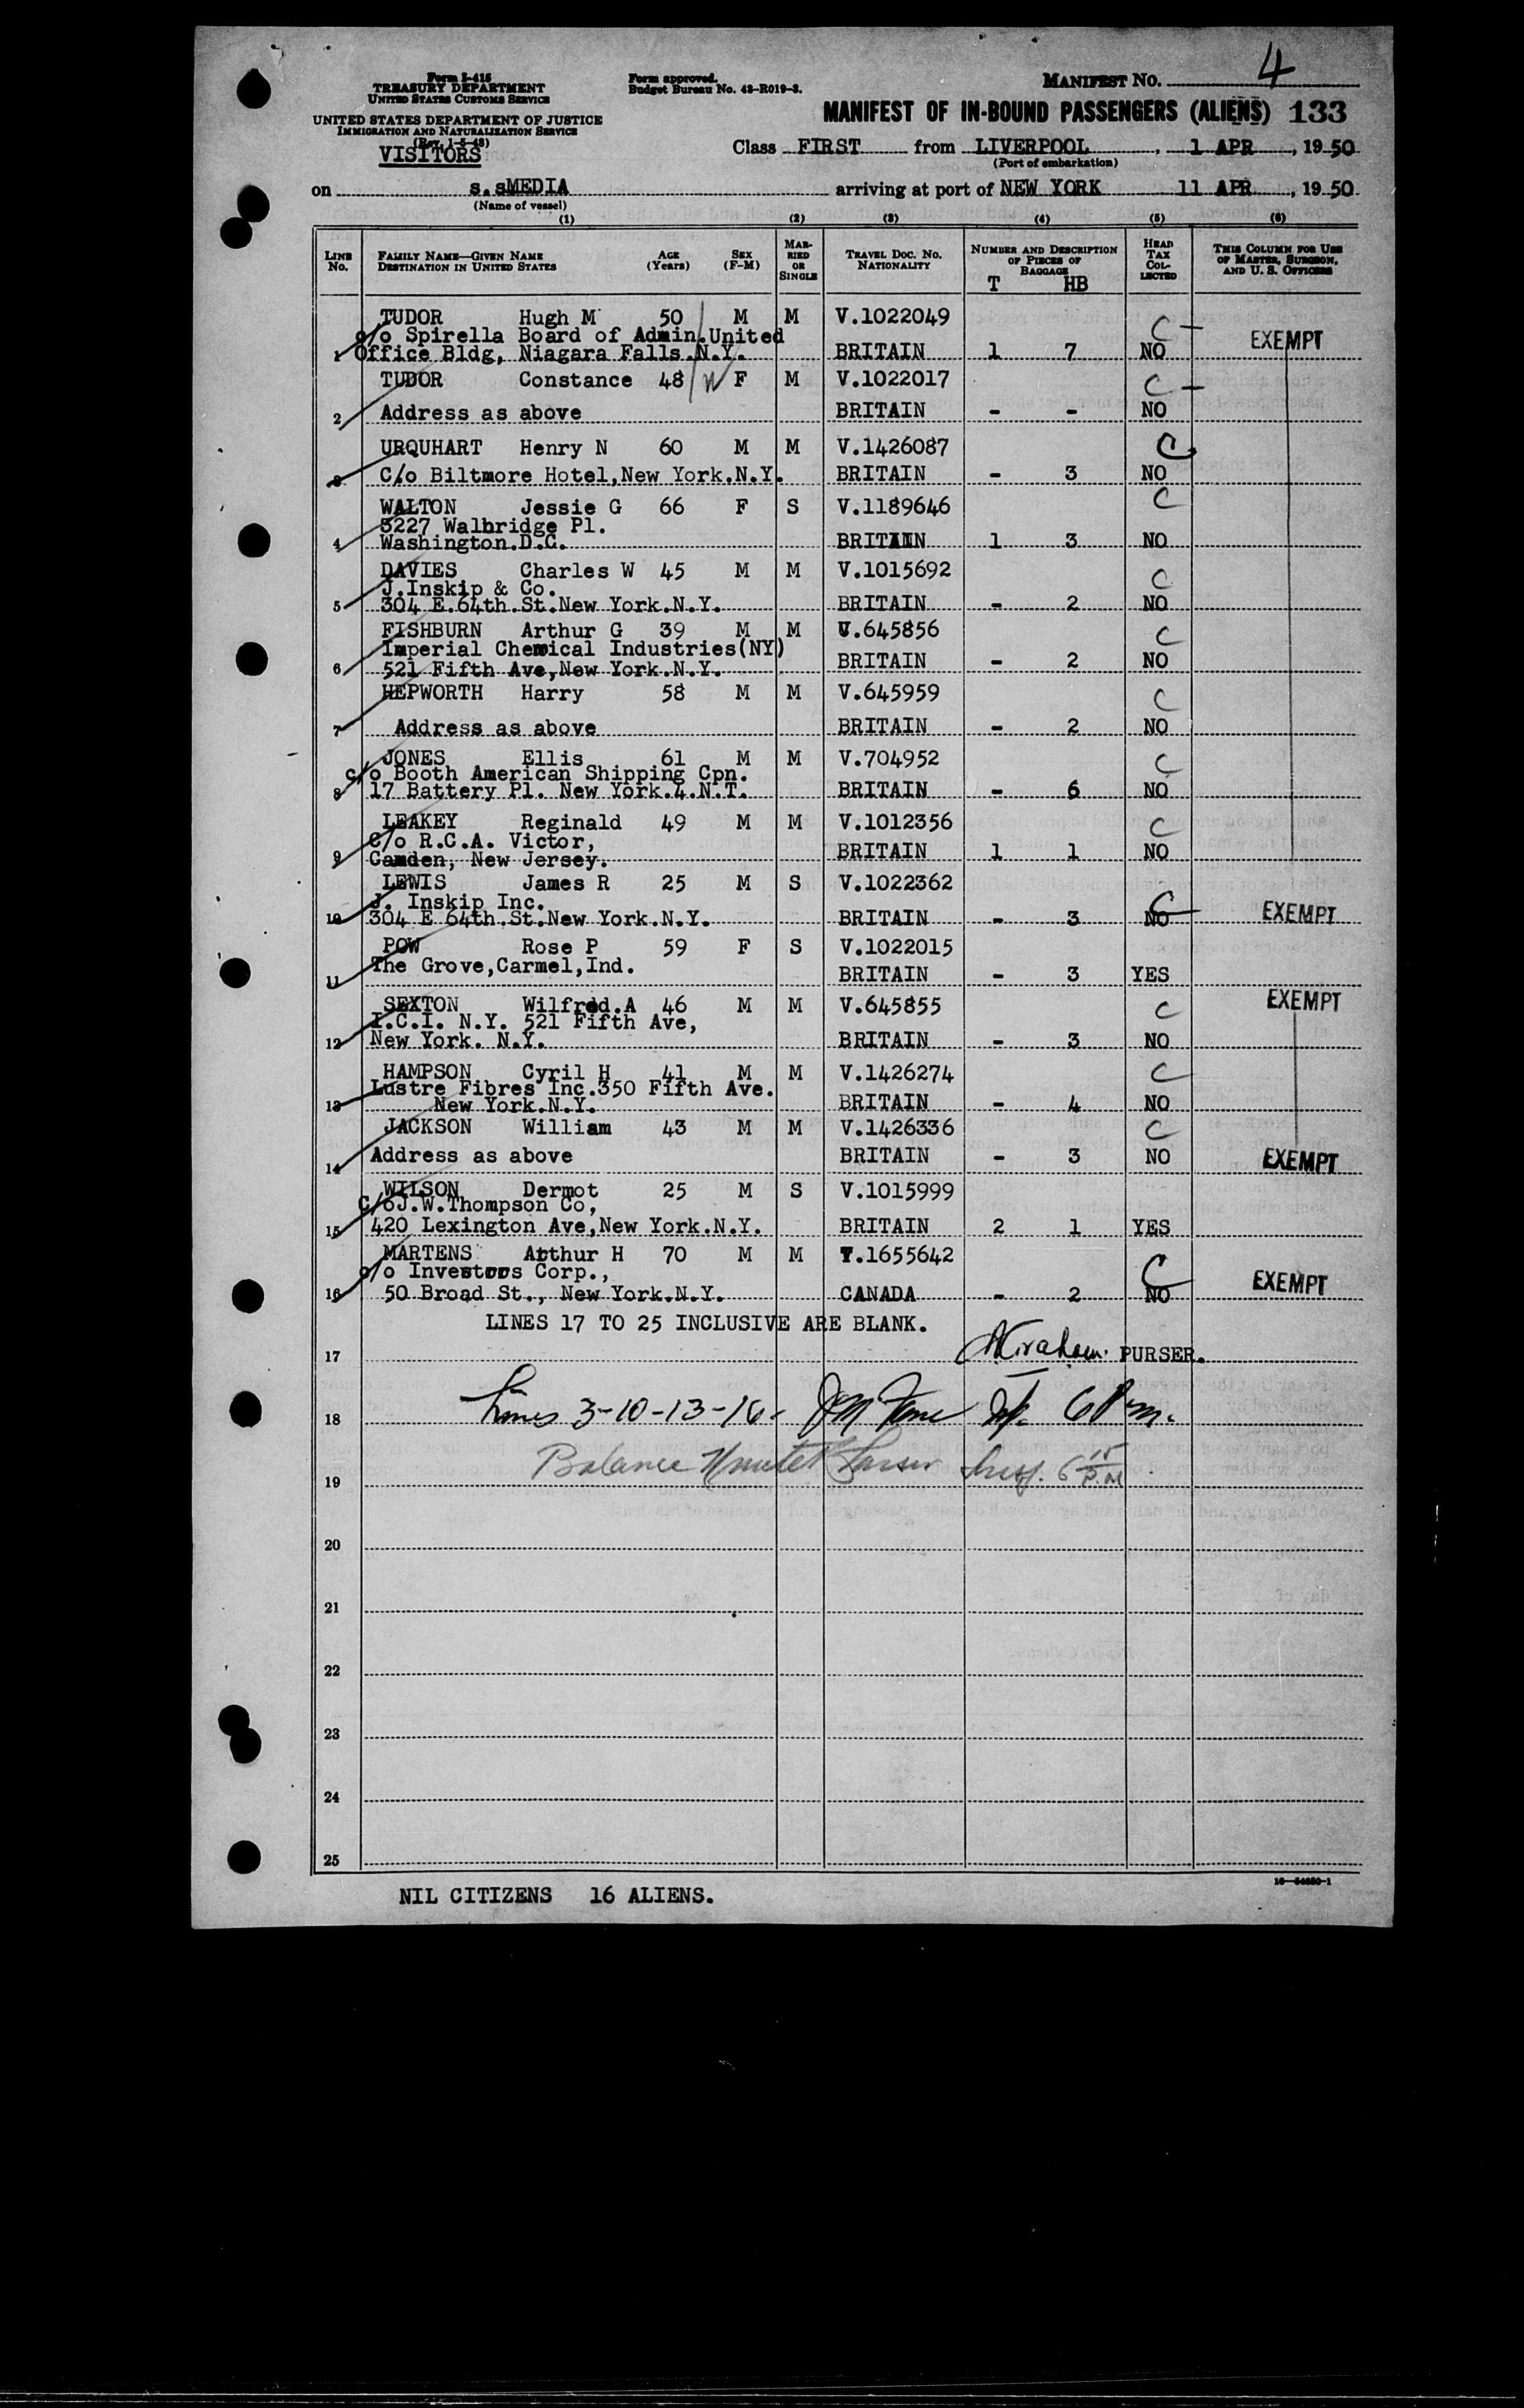 Form I-415
TREASURY DEPARTMENT
UNITED STATES CUSTOMS SERVICE
UNITED STATES DEPARTMENT OF JUSTICE
IMMIGRATION AND NATURALIZATION SERVICE
(Rev. 1-5-48)
VISITORS
Form approved.
Budget Bureau No. 43-R019-3.
MANIFEST NO. 4
MANIFEST OF IN-BOUND PASSENGERS (ALIENS) 133
Class FIRST from LIVERPOOL, 1 APR, 1950
(Port of embarkation)
on s.sMEDIA arriving at port of NEW YORK 11 APR, 1950
(Name of vessel)
(1) (2) (3) (4) (5) (6)
LINE No. FAMILY NAME—GIVEN NAME DESTINATION IN UNITED STATES AGE (Years) SEX (F-M) MARRIED OR SINGLE TRAVEL DOC. NO. NATIONALITY NUMBER AND DESCRIPTION OF PIECES OF BAGGAGE HEAD TAX COLLECTED THIS COLUMN FOR USE OF MASTER, SURGEON, AND U. S. OFFICERS
T HB
TUDOR Hugh M 50 M M V.1022049 C
c/o Spirella Board of Admin.United EXEMPT
1 Office Bldg, Niagara Falls.N.Y. BRITAIN 1 7 NO
TUDOR Constance 48 W F M V.1022017 C
2 Address as above BRITAIN - - NO
URQUHART Henry N 60 M M V.1426087 C
3 C/o Biltmore Hotel,New York.N.Y. BRITAIN - 3 NO
WALTON Jessie G 66 F S V.1189646 C
3227 Walbridge Pl.
4 Washington.D.C. BRITAIN 1 3 NO
DAVIES Charles W 45 M M V.1015692 C
J.Inskip & Co.
5 304 E.64th.St.New York.N.Y. BRITAIN - 2 NO
FISHBURN Arthur G 39 M M V.645856 C
Imperial Chemical Industries(NY)
6 521 Fifth Ave,New York.N.Y. BRITAIN - 2 NO
HEPWORTH Harry 58 M M V.645959 C
7 Address as above BRITAIN - 2 NO
JONES Ellis 61 M M V.704952 C
c/o Booth American Shipping Cpn.
8 17 Battery Pl. New York.4.N.T. BRITAIN - 6 NO
LEAKEY Reginald 49 M M V.1012356 C
C/o R.C.A. Victor,
9 Camden, New Jersey. BRITAIN 1 1 NO
LEWIS James R 25 M S V.1022362 C
J. Inskip Inc.
10 304 E 64th.St.New York.N.Y. BRITAIN - 3 NO EXEMPT
POW Rose P 59 F S V.1022015
The Grove,Carmel,Ind.
11 BRITAIN - 3 YES
SEXTON Wilfred.A 46 M M V.645855 C EXEMPT
I.C.I. N.Y. 521 Fifth Ave,
12 New York. N.Y. BRITAIN - 3 NO
HAMPSON Cyril H 41 M M V.1426274 C
Lustre Fibres Inc.350 Fifth Ave.
13 New York.N.Y. BRITAIN - 4 NO
JACKSON William 43 M M V.1426336 C
14 Address as above BRITAIN - 3 NO EXEMPT
WILSON Dermot 25 M S V.1015999
C/oJ.W.Thompson Co,
15 420 Lexington Ave,New York.N.Y. BRITAIN 2 1 YES
MARTENS Arthur H 70 M M V.1655642 C
c/o Investors Corp.,
16 50 Broad St., New York.N.Y. CANADA - 2 NO EXEMPT
LINES 17 TO 25 INCLUSIVE ARE BLANK.
17 PURSER.
18 Lines 3-10-13-16- 6 P.m.
19 Balance Insp. 6 15 P.M
20
21
22
23
24
25
NIL CITIZENS 16 ALIENS.